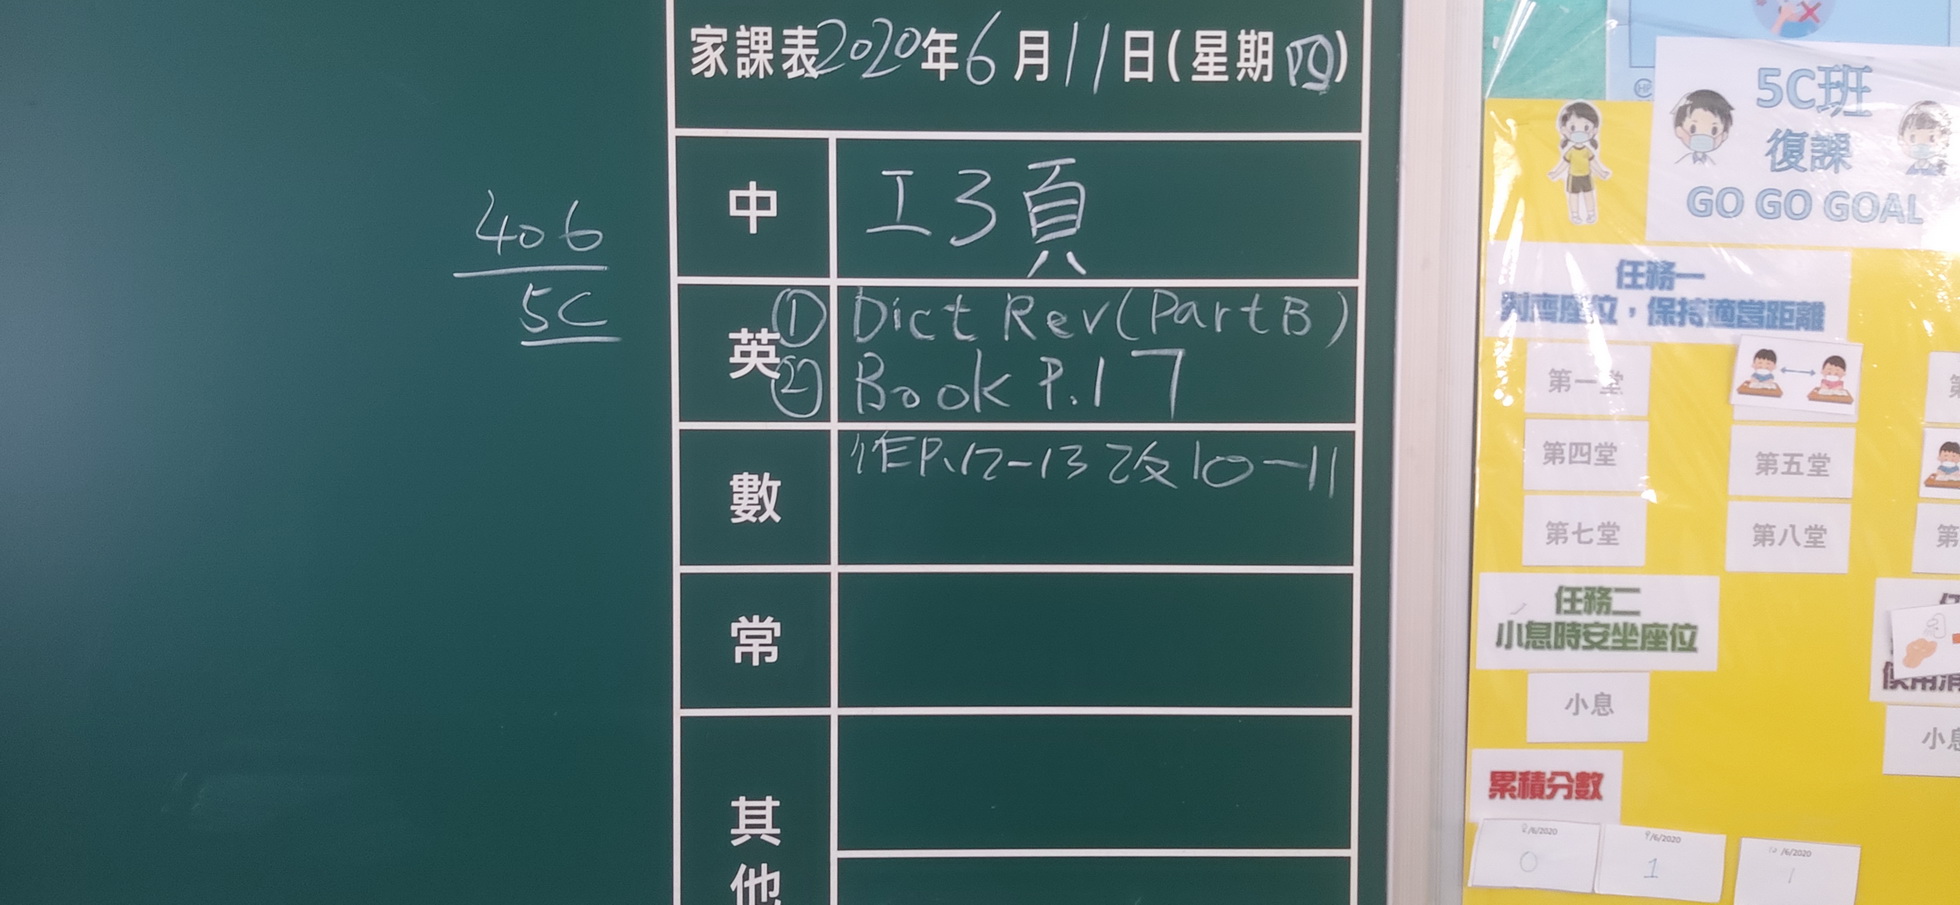 家課表2020年6月11日(星期四)
406
5C
中
工3頁
英
① Dict Rev (Part B)
② Book P.17
數
作P.12-13 改10-11
常
其他
5C班
復課
GO GO GOAL
任務一
對齊座位，保持適當距離
第一堂
第四堂
第五堂
第七堂
第八堂
任務二
小息時安坐座位
小息
小息
累積分數
9/6/2020
0
1
1